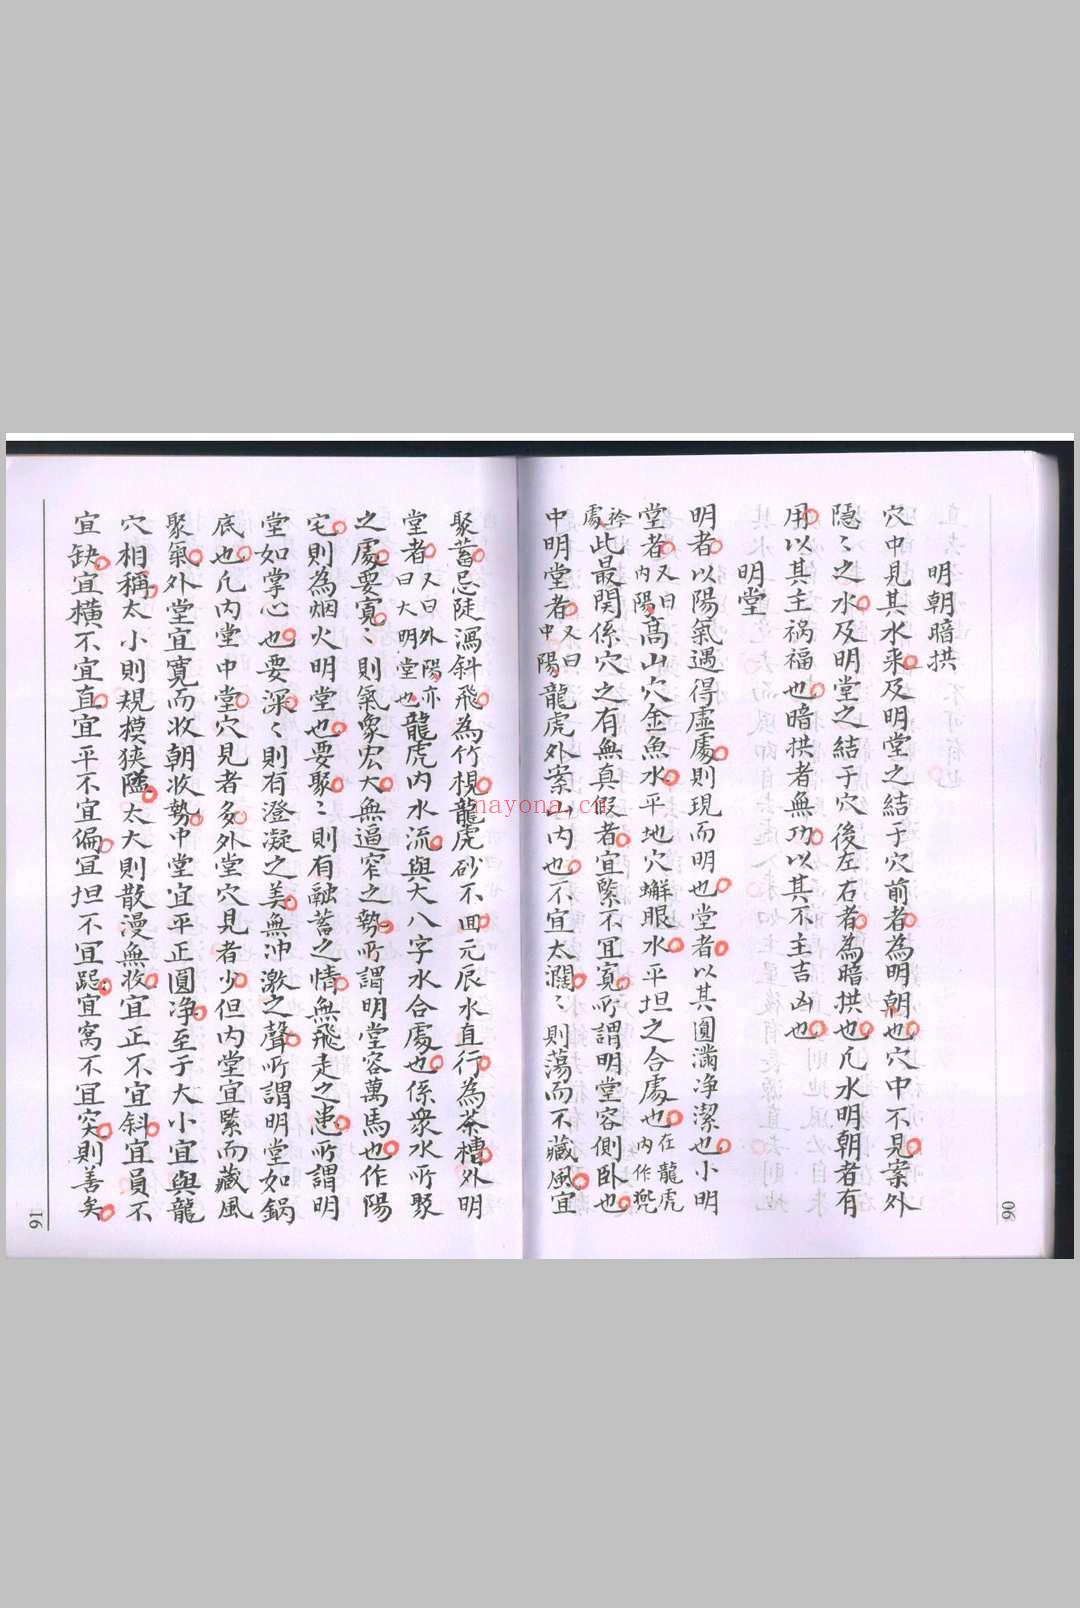 明朝暗拱
穴中見其水來及明堂之結于穴前者為明朝也穴中不見案外
隐〻之水及明堂之結于穴後左右者為暗拱也凡水明朝者有
用以其主祸福也暗拱者無功以其不主吉凶也
明堂
明者以陽氣遇得虛處則現而明也堂者以其圓滿净潔也小明
堂者又曰內陽高山穴金魚水平地穴蠏眼水平坦之合處也在龍虎內作兜
衿處此最関係穴之有無真假者宜緊不宜寬所謂明堂容側卧也
中明堂者又曰中陽龍虎外案山內也不宜太濶〻則荡而不藏風宜
聚蓄忌陡瀉斜飛為竹梘龍虎砂不囬元辰水直行為茶槽外明
堂者又曰外陽亦曰大明堂也龍虎內水流與大八字水合處也係衆水所聚
之處要寬〻則氣象宏大無逼窄之勢所謂明堂容萬馬也作陽
宅則為烟火明堂也要聚〻則有融蓄之情無飛走之患所謂明
堂如掌心也要深〻則有澄凝之美無冲激之聲所謂明堂如鍋
底也凡內堂中堂穴見者多外堂穴見者少但內堂宜緊而藏風
聚氣外堂宜寬而收朝收勢中堂宜平正圓净至于大小宜與龍
穴相稱太小則規模狹隘太大則散漫無收宜正不宜斜宜員不
宜缺宜橫不宜直宜平不宜偏宜坦不宜跽宜窩不宜突則善矣
90
91
nayona.cn